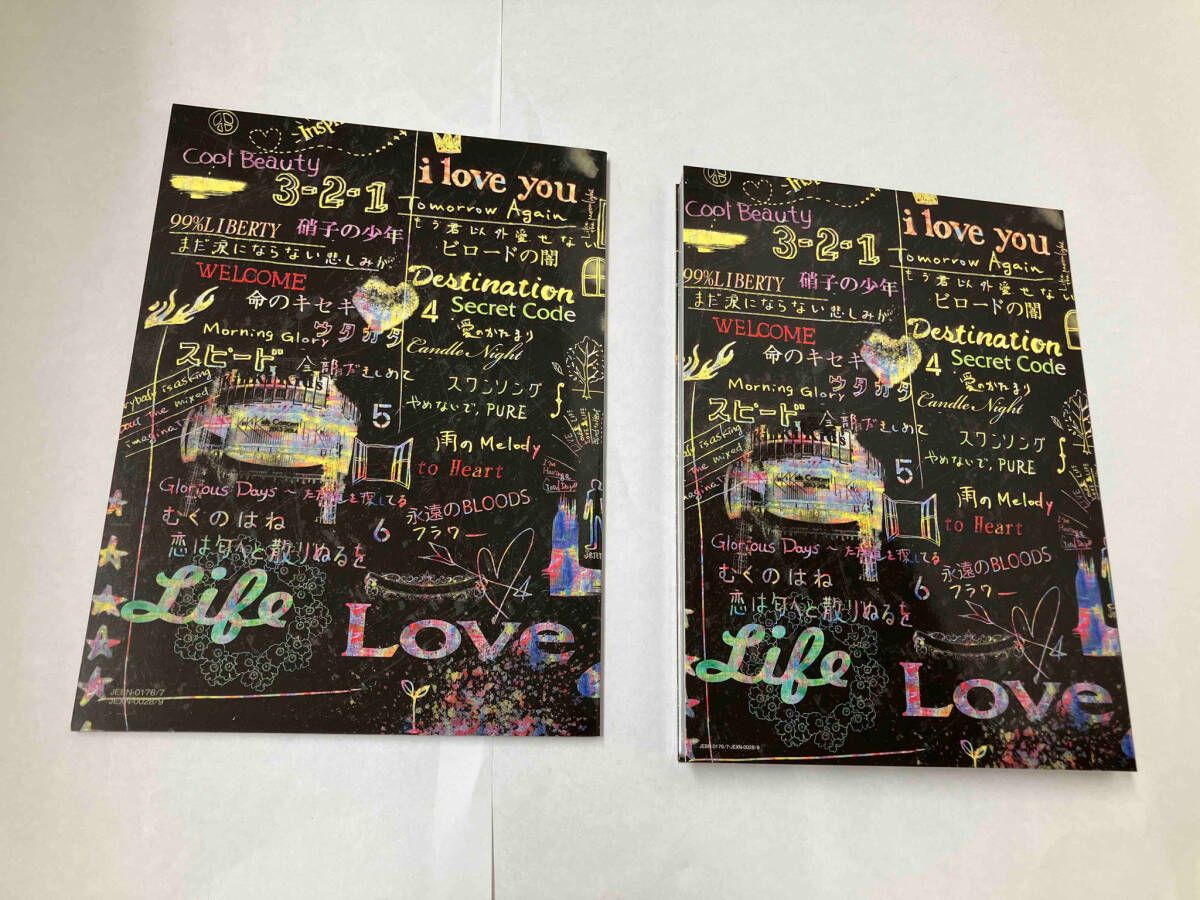 Inspi
Cool Beauty
3-2-1
i love you
Tomorrow Again
99%LIBERTY 硝子の少年
もう君以外愛せない
まだ涙にならない悲しみが
ビロードの闇
WELCOME
Destination
命のキセキ
4 Secret Code
Morning Glory ウタカタ
愛のかたまり
Candle Night
スピード 全部だきしめて
スワンソング
is asking
5
やめないで, PURE
The mixed
雨のMelody
to Heart
Glorious Days～ただ道を探してる
永遠のBLOODS
むくのはね
6 フラワー
恋は匂へと散りぬるを
Life
Love
JEBN-0176/7
JEXN-0028/9
Cool Beauty
3-2-1
i love you
Tomorrow Again
99%LIBERTY 硝子の少年
もう君以外愛せない
まだ涙にならない悲しみが
ビロードの闇
WELCOME
Destination
命のキセキ
4 Secret Code
Morning Glory ウタカタ
愛のかたまり
Candle Night
スピード 全部だきしめて
スワンソング
is asking
5
やめないで, PURE
The mixed
雨のMelody
to Heart
Glorious Days～ただ道を探してる
永遠のBLOODS
むくのはね
6 フラワー
恋は匂へと散りぬるを
Life
Love
JEBN-0176/7・JEXN-0028/9